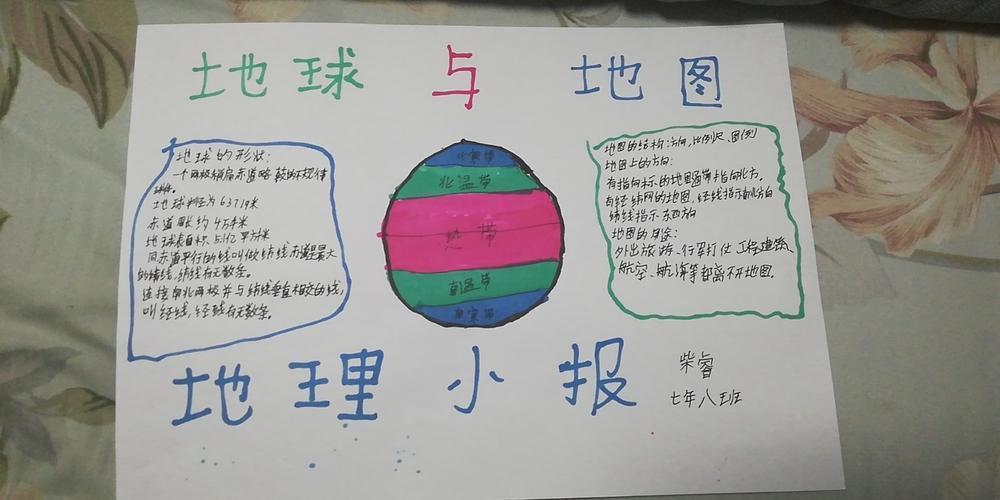 地球 与 地图
地球的形状:
一个两极稍扁赤道略鼓的不规律
球体。
地球半径为6371千米
赤道周长约4万千米
地球表面积5.1亿平方千米
同赤道平行的线叫做纬线赤道是最大
的纬线,纬线有无数条。
连接南北两极并与纬线垂直相交的线,
叫经线,经线有无数条。
北寒带
北温带
热 带
南温带
南寒带
地图的结构:方向,比例尺、图例
地图上的方向:
有指向标的地图通常指向北方。
有经纬网的地图,经线指示南北方向
纬线指示东西方向
地图的用途:
外出旅游、行军打仗 工程建筑、
航空、航海等都离不开地图。
地理小报
柴睿
七年八班